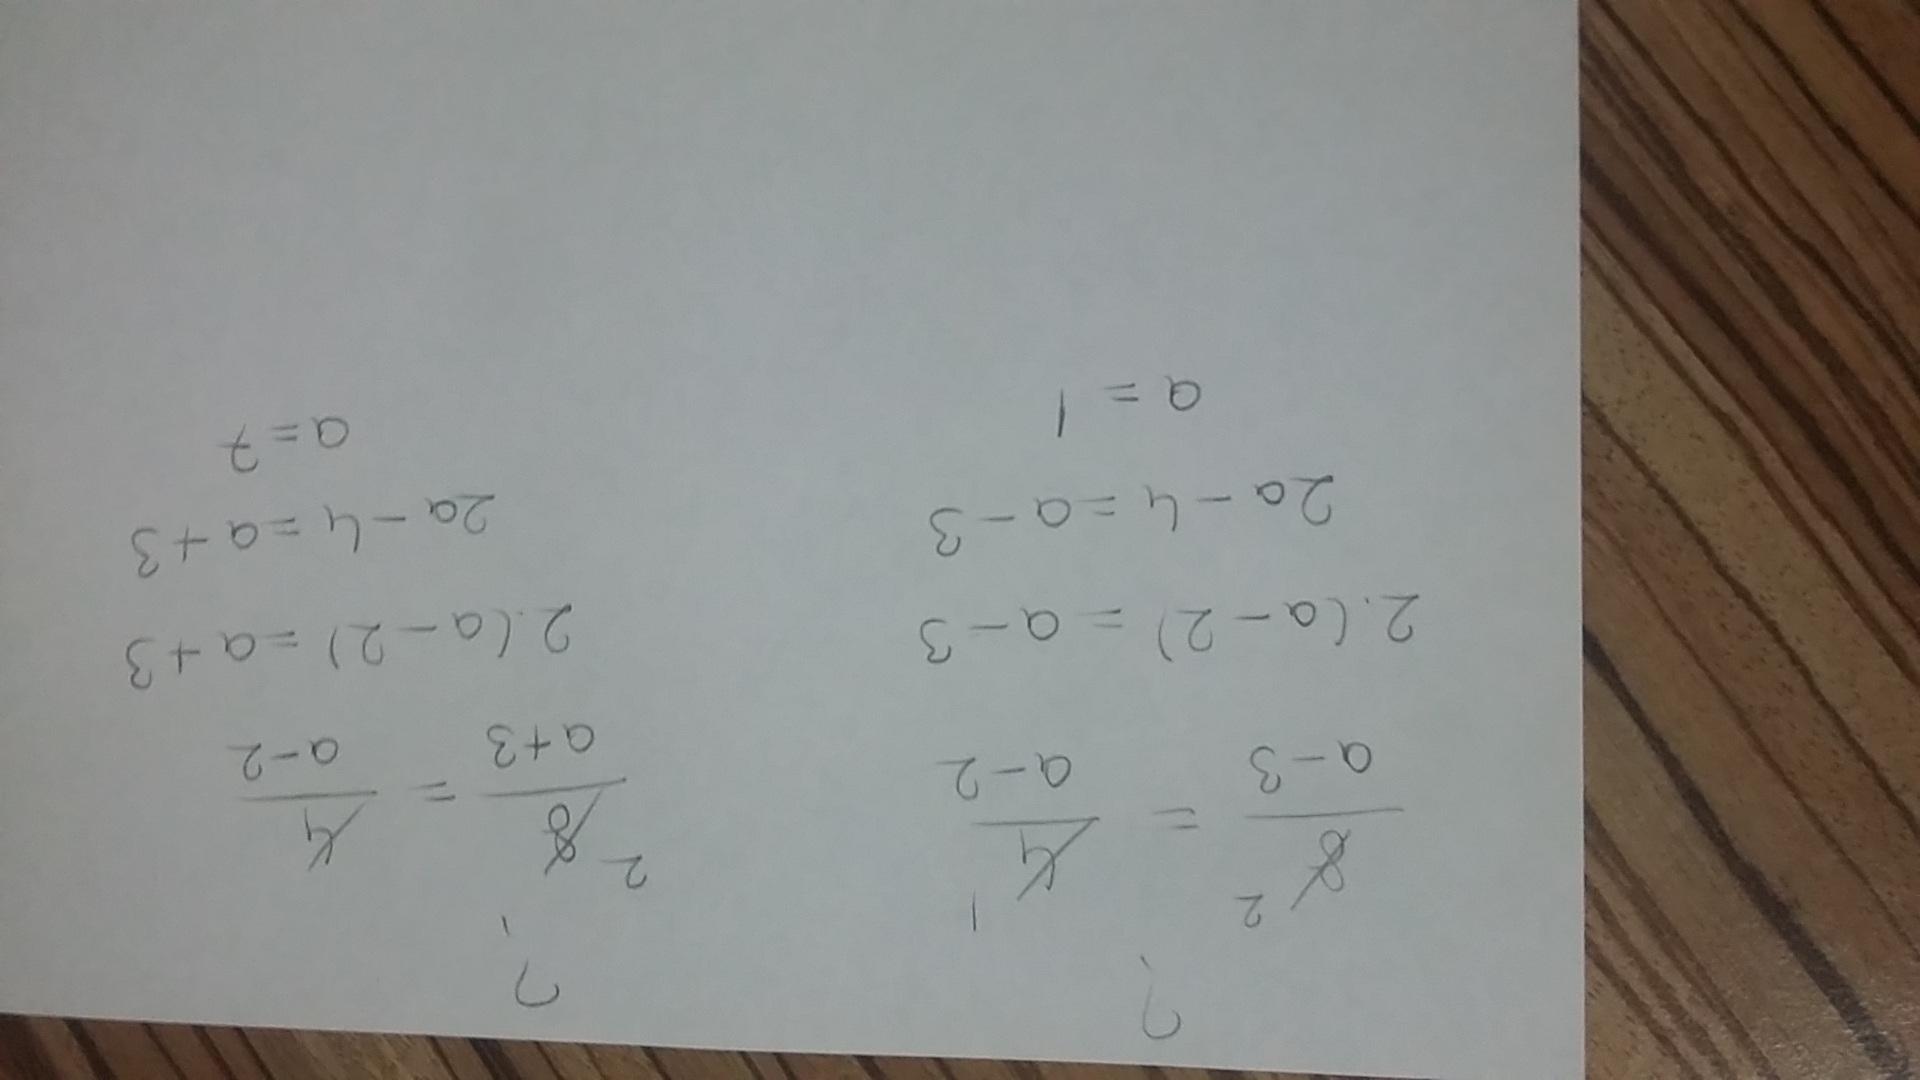 ?
8/ 2 / (a-3) = 4/ 1 / (a-2)
2.(a-2) = a-3
2a-4 = a-3
a = 1
?
2 8/(a+3) = 4/(a-2)
2.(a-2) = a+3
2a-4 = a+3
a=7